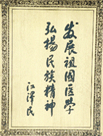 发展祖国医学
弘扬民族精神
江泽民